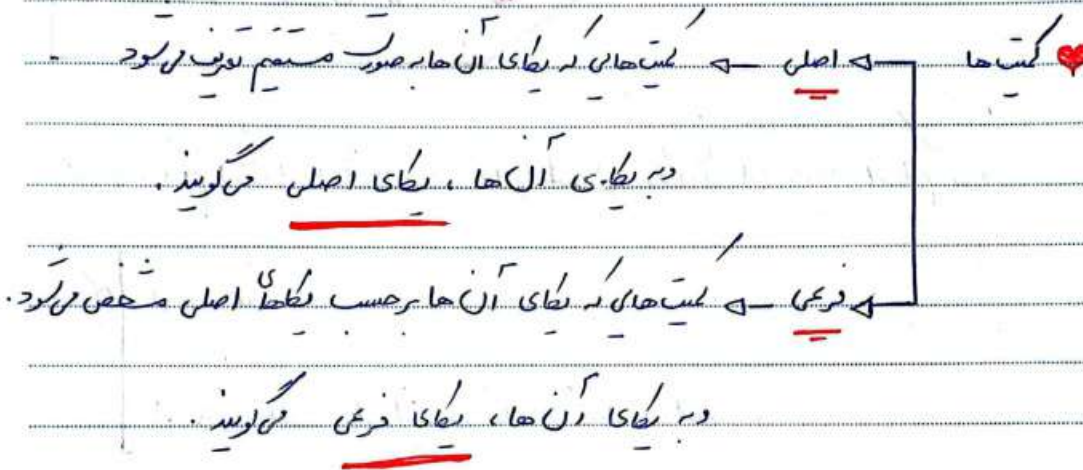 کمیت ها ← اصلی ← کمیت هایی که یکای آن ها به صورت مستقیم تعریف می شود
و به یکای آن ها ، یکای اصلی می گویند .
فرعی ← کمیت هایی که یکای آن ها برحسب یکاهای اصلی مشخص می شود .
و به یکای آن ها ، یکای فرعی می گویند .